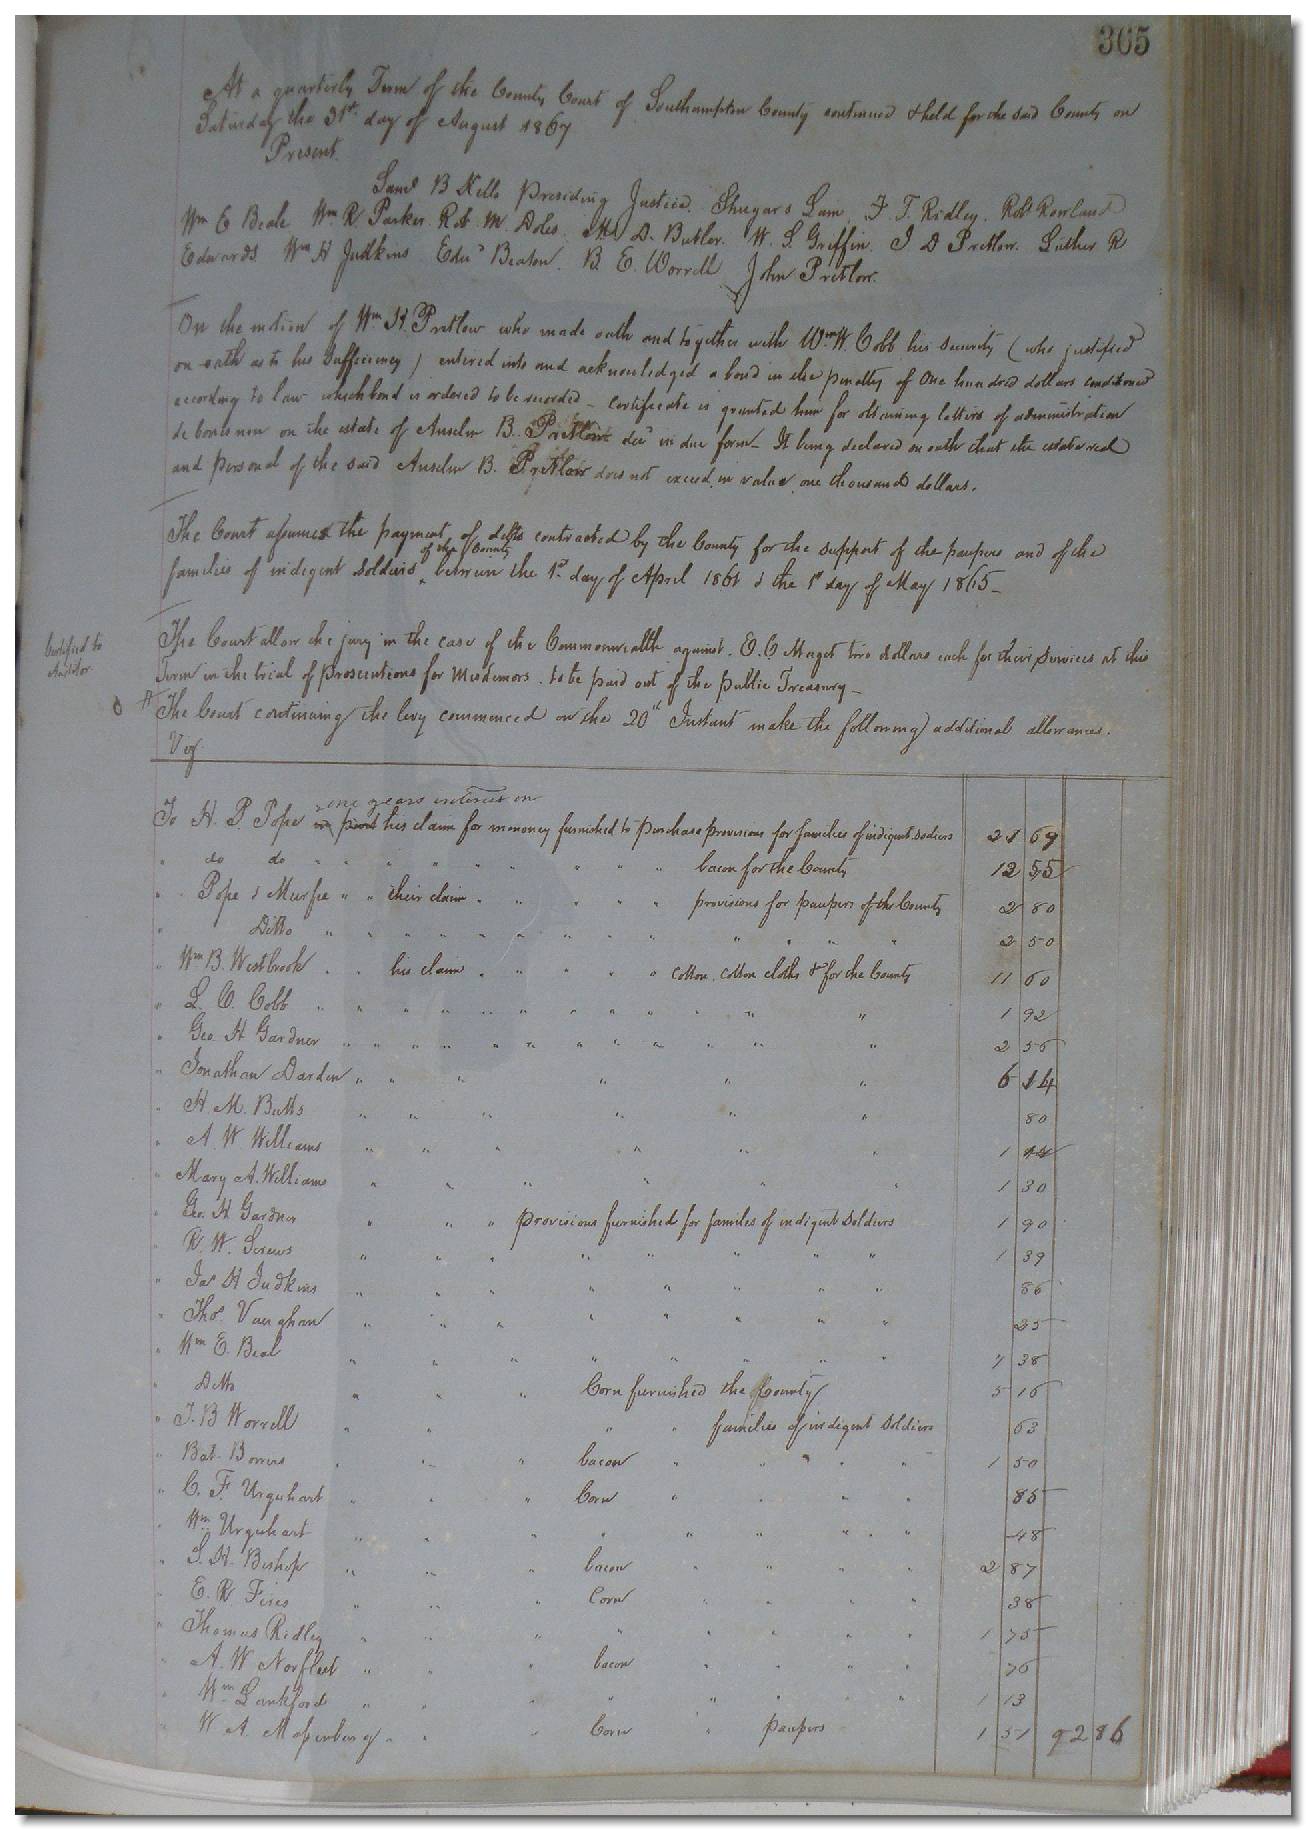 365
At a quarterly Term of the County Court of Southampton County continued & held for the said County on
Saturday the 31st day of August 1867
Present.
Saml B Kello Presiding Justice. Shugars Lain, F. T. Ridley. Robt Rowland
Wm E Beale Wm R. Parker. Ro. M. Doles. D. Butler. W. S. Griffin. J D Pretlow. Luther R
Edwards. Wm H Judkins Edwd Beaton. B. E. Worrell John Pretlow.
On the motion of Wm H. Pretlow who made oath and together with Wm W. Cobb his security (who justified
on oath as to his sufficiency) entered into and acknowledged a bond in the penalty of One hundred dollars conditioned
according to law which bond is ordered to be recorded – certificate is granted him for obtaining letters of administration
de bonis non on the estate of Anselm B. Pretlow decd in due form – It being declared on oath that the estate real
and personal of the said Anselm B. Pretlow does not exceed in value one thousand dollars.
The Court assumes the payment of debts contracted by the County for the support of the paupers and of the
of the County
families of indigent soldiers between the 1st day of April 1861 & the 1st day of May 1865 –
Certified to
Auditor
The Court allow the jury in the case of the Commonwealth against. E. C Maget two dollars each for their services at this
Term in the trial of prosecutions for Misdemors. to be paid out of the public Treasury –
The Court continuing the levy commenced on the 20th Instant make the following additional allowances.
Viz.
one years interest on
To H. P. Pope his claim for monney furnished to purchase provisions for families of indigent soldiers 21 69
" do do " " " " " " " bacon for the County 12 55
" Pope & Murfee " " their claim " " " " " provisions for paupers of the County 2 80
" Ditto " " " " " " " " " " " " 2 50
" Wm B. Westbrook " " his claim " " " " " cotton, cotton cloths & for the County 11 60
" L. C. Cobb " " " " " " " " " " " 1 92
" Geo. H Gardner " " " " " " " " " " " 2 56
" Jonathan Darden " " " " " " 6 14
" H. M. Butts " " " " " " 80
" A. W Williams " " " " " 1 44
" Mary A. Williams " " " " " " 1 30
" Geo. H Gardner " " " provisions furnished for familes of indigent soldiers 1 90
" R. W. Screws " " " " " " " " 1 39
" Jas H Judkins " " " " " " " " 86
" Thos. Vaughan " " " " " " " " 25
" Wm E. Beal " " " " " " " " 7 38
" Ditto " " " Corn furnished the County 5 16
" J. B Worrell " " " " families of indigent soldiers 63
" Bat. " " " bacon " " " " 1 50
" C. F. Urquhart " " " Corn " " " " 85
" Wm Urquhart " " " " " " " " 48
" S. H. Bishop " " " bacon " " " " 2 87
" E. R " " " Corn " " " " 38
" Thomas Ridley " " " " " " " " 1 75
" A. W Norfleet " " " bacon " " " " 76
" Wm Lankford " " " " " " " " 1 13
" W A. " " " Corn " paupers 1 51 92 86